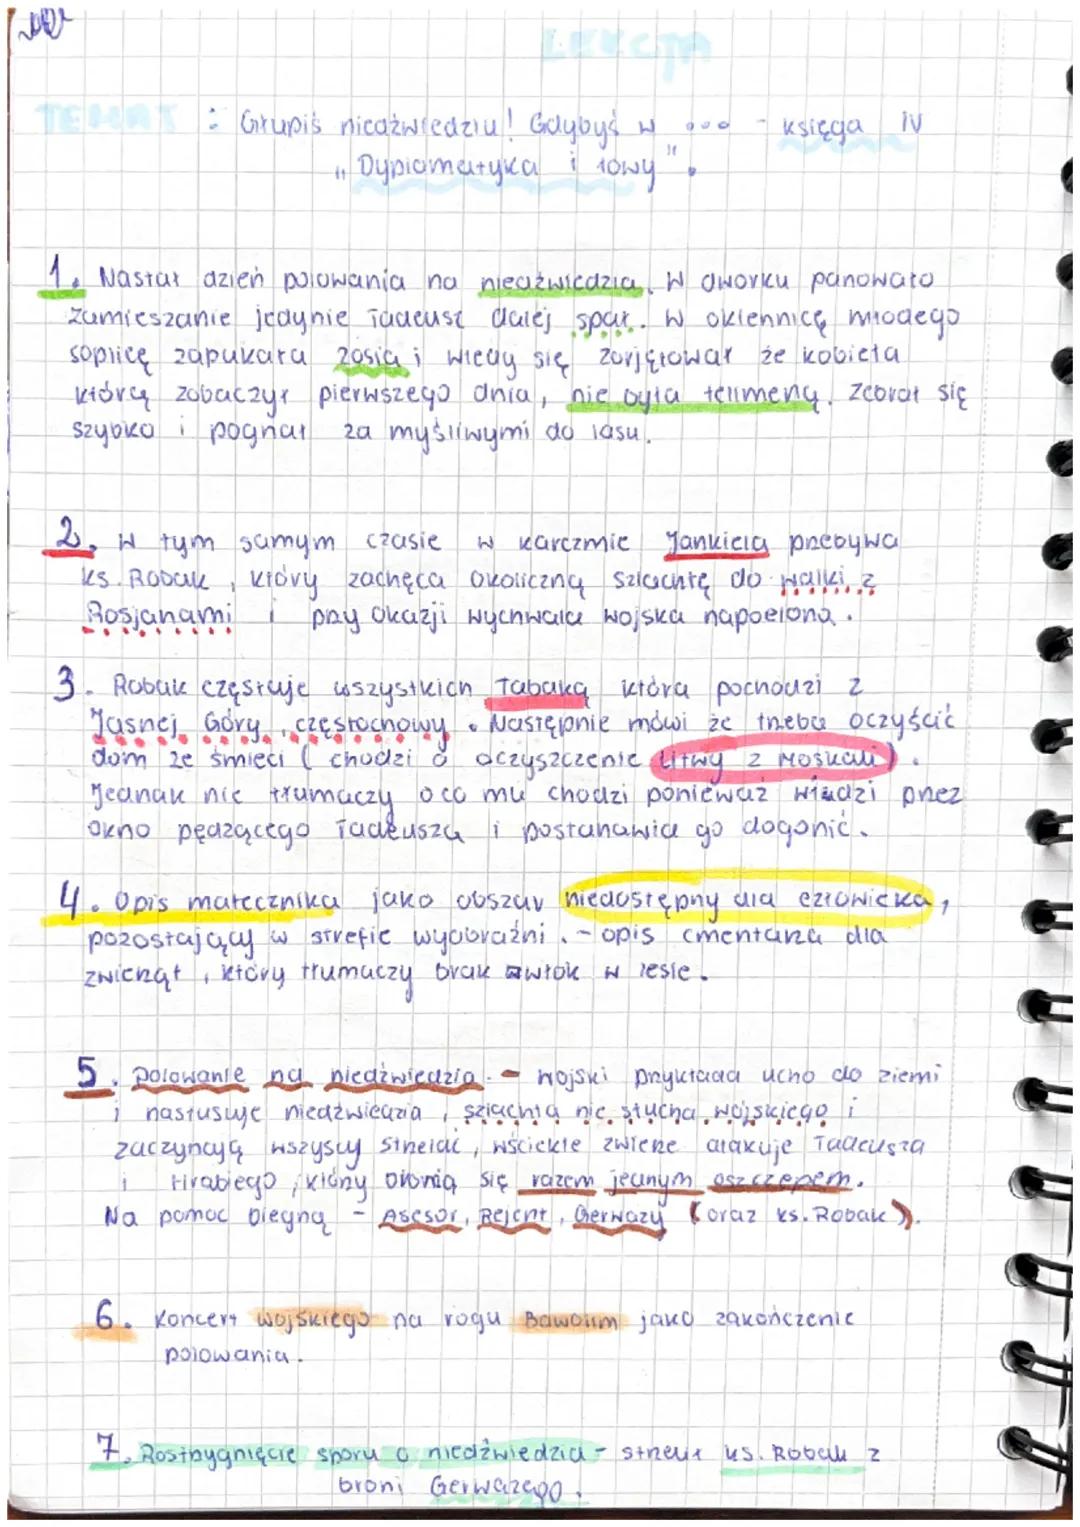 LEKCJA
TEMAT : Głupiś niedźwiedziu! Gdybyś w ... - księga IV
„Dyplomatyka i łowy".
1. Nastał dzień polowania na niedźwiedzia. W dworku panowało
zamieszanie jedynie Tadeusz dalej spał. W okiennicę młodego
soplicę zapukała Zosia i wtedy się zorjętował że kobieta
którą zobaczył pierwszego dnia, nie była telimeną. Zebrał się
szybko i pognał za myśliwymi do lasu.
2. W tym samym czasie w karczmie Jankiela przebywa
ks. Robak, który zachęca okoliczną szlachtę do walki z
Rosjanami i przy okazji wychwala wojska napoelona.
3. Robak częstuje wszystkich Tabaką która pochodzi z
Jasnej Góry, częstochowy. Następnie mówi że trzeba oczyścić
dom ze śmieci (chodzi o oczyszczenie Litwy z Moskali).
Jednak nie tłumaczy o co mu chodzi ponieważ widzi przez
okno pędzącego Tadeusza i postanawia go dogonić.
4. Opis matecznika jako obszar niedostępny dla człowieka,
pozostający w strefie wyobraźni. - opis cmentarza dla
zwierząt, który tłumaczy brak zwłok w lesie.
5. Polowanie na niedźwiedzia. - Wojski przykłada ucho do ziemi
i nasłusuje niedźwiedzia, szlachta nie słucha wojskiego i
zaczynają wszyscy strzelać, wściekłe zwierze atakuje Tadeusza
i Hrabiego, którzy bronią się razem jednym oszczepem.
Na pomoc biegną - Asesor, Rejent, Gerwazy (oraz ks. Robak).
6. Koncert wojskiego na rogu Bawolim jako zakończenie
polowania.
7. Rostrzygnięcie sporu o niedźwiedzia - strzelił ks. Robak z
broni Gerwazego.